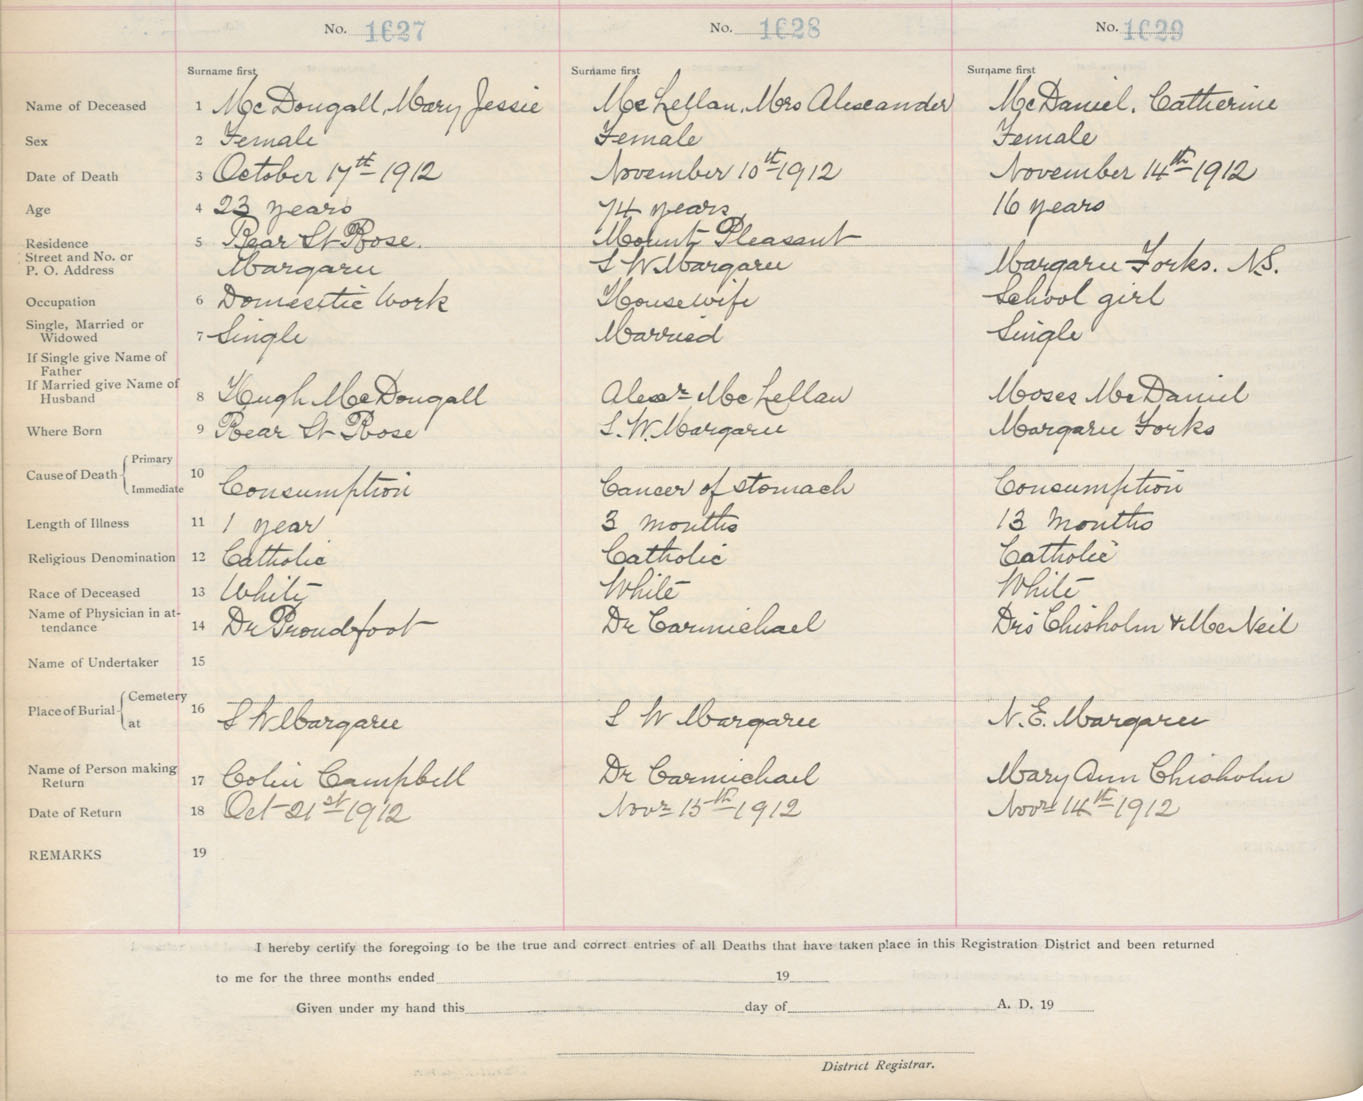 No. 1627 No. 1628 No. 1629
Surname first Surname first Surname first
Name of Deceased 1 McDougall, Mary Jessie McLellan, Mrs Alexander McDaniel, Catherine
Sex 2 Female Female Female
Date of Death 3 October 17th 1912 November 10th 1912 November 14th 1912
Age 4 23 years 74 years 16 years
Residence 5 Rear St Rose. Mount Pleasant
Street and No. or
P. O. Address Margaree S W Margaree Margaree Forks. N.S.
Occupation 6 Domestic Work Housewife School girl
Single, Married or
Widowed 7 Single Married Single
If Single give Name of
Father
If Married give Name of
Husband 8 Hugh McDougall Alexr McLellan Moses McDaniel
Where Born 9 Rear St Rose S. W. Margaree Margaree Forks
Cause of Death Primary 10
Immediate Consumption Cancer of stomach Consumption
Length of Illness 11 1 year 3 months 13 months
Religious Denomination 12 Catholic Catholic Catholic
Race of Deceased 13 White White White
Name of Physician in at-
tendance 14 Dr Proudfoot Dr Carmichael Drs Chisholm & McNeil
Name of Undertaker 15
Place of Burial Cemetery 16
at S W Margaree S W Margaree N. E. Margaree
Name of Person making
Return 17 Colin Campbell Dr Carmichael Mary Ann Chisholm
Date of Return 18 Oct 21st 1912 Novr 15th 1912 Novr 14th 1912
REMARKS 19
I hereby certify the foregoing to be the true and correct entries of all Deaths that have taken place in this Registration District and been returned
to me for the three months ended 19
Given under my hand this day of A. D. 19
District Registrar.